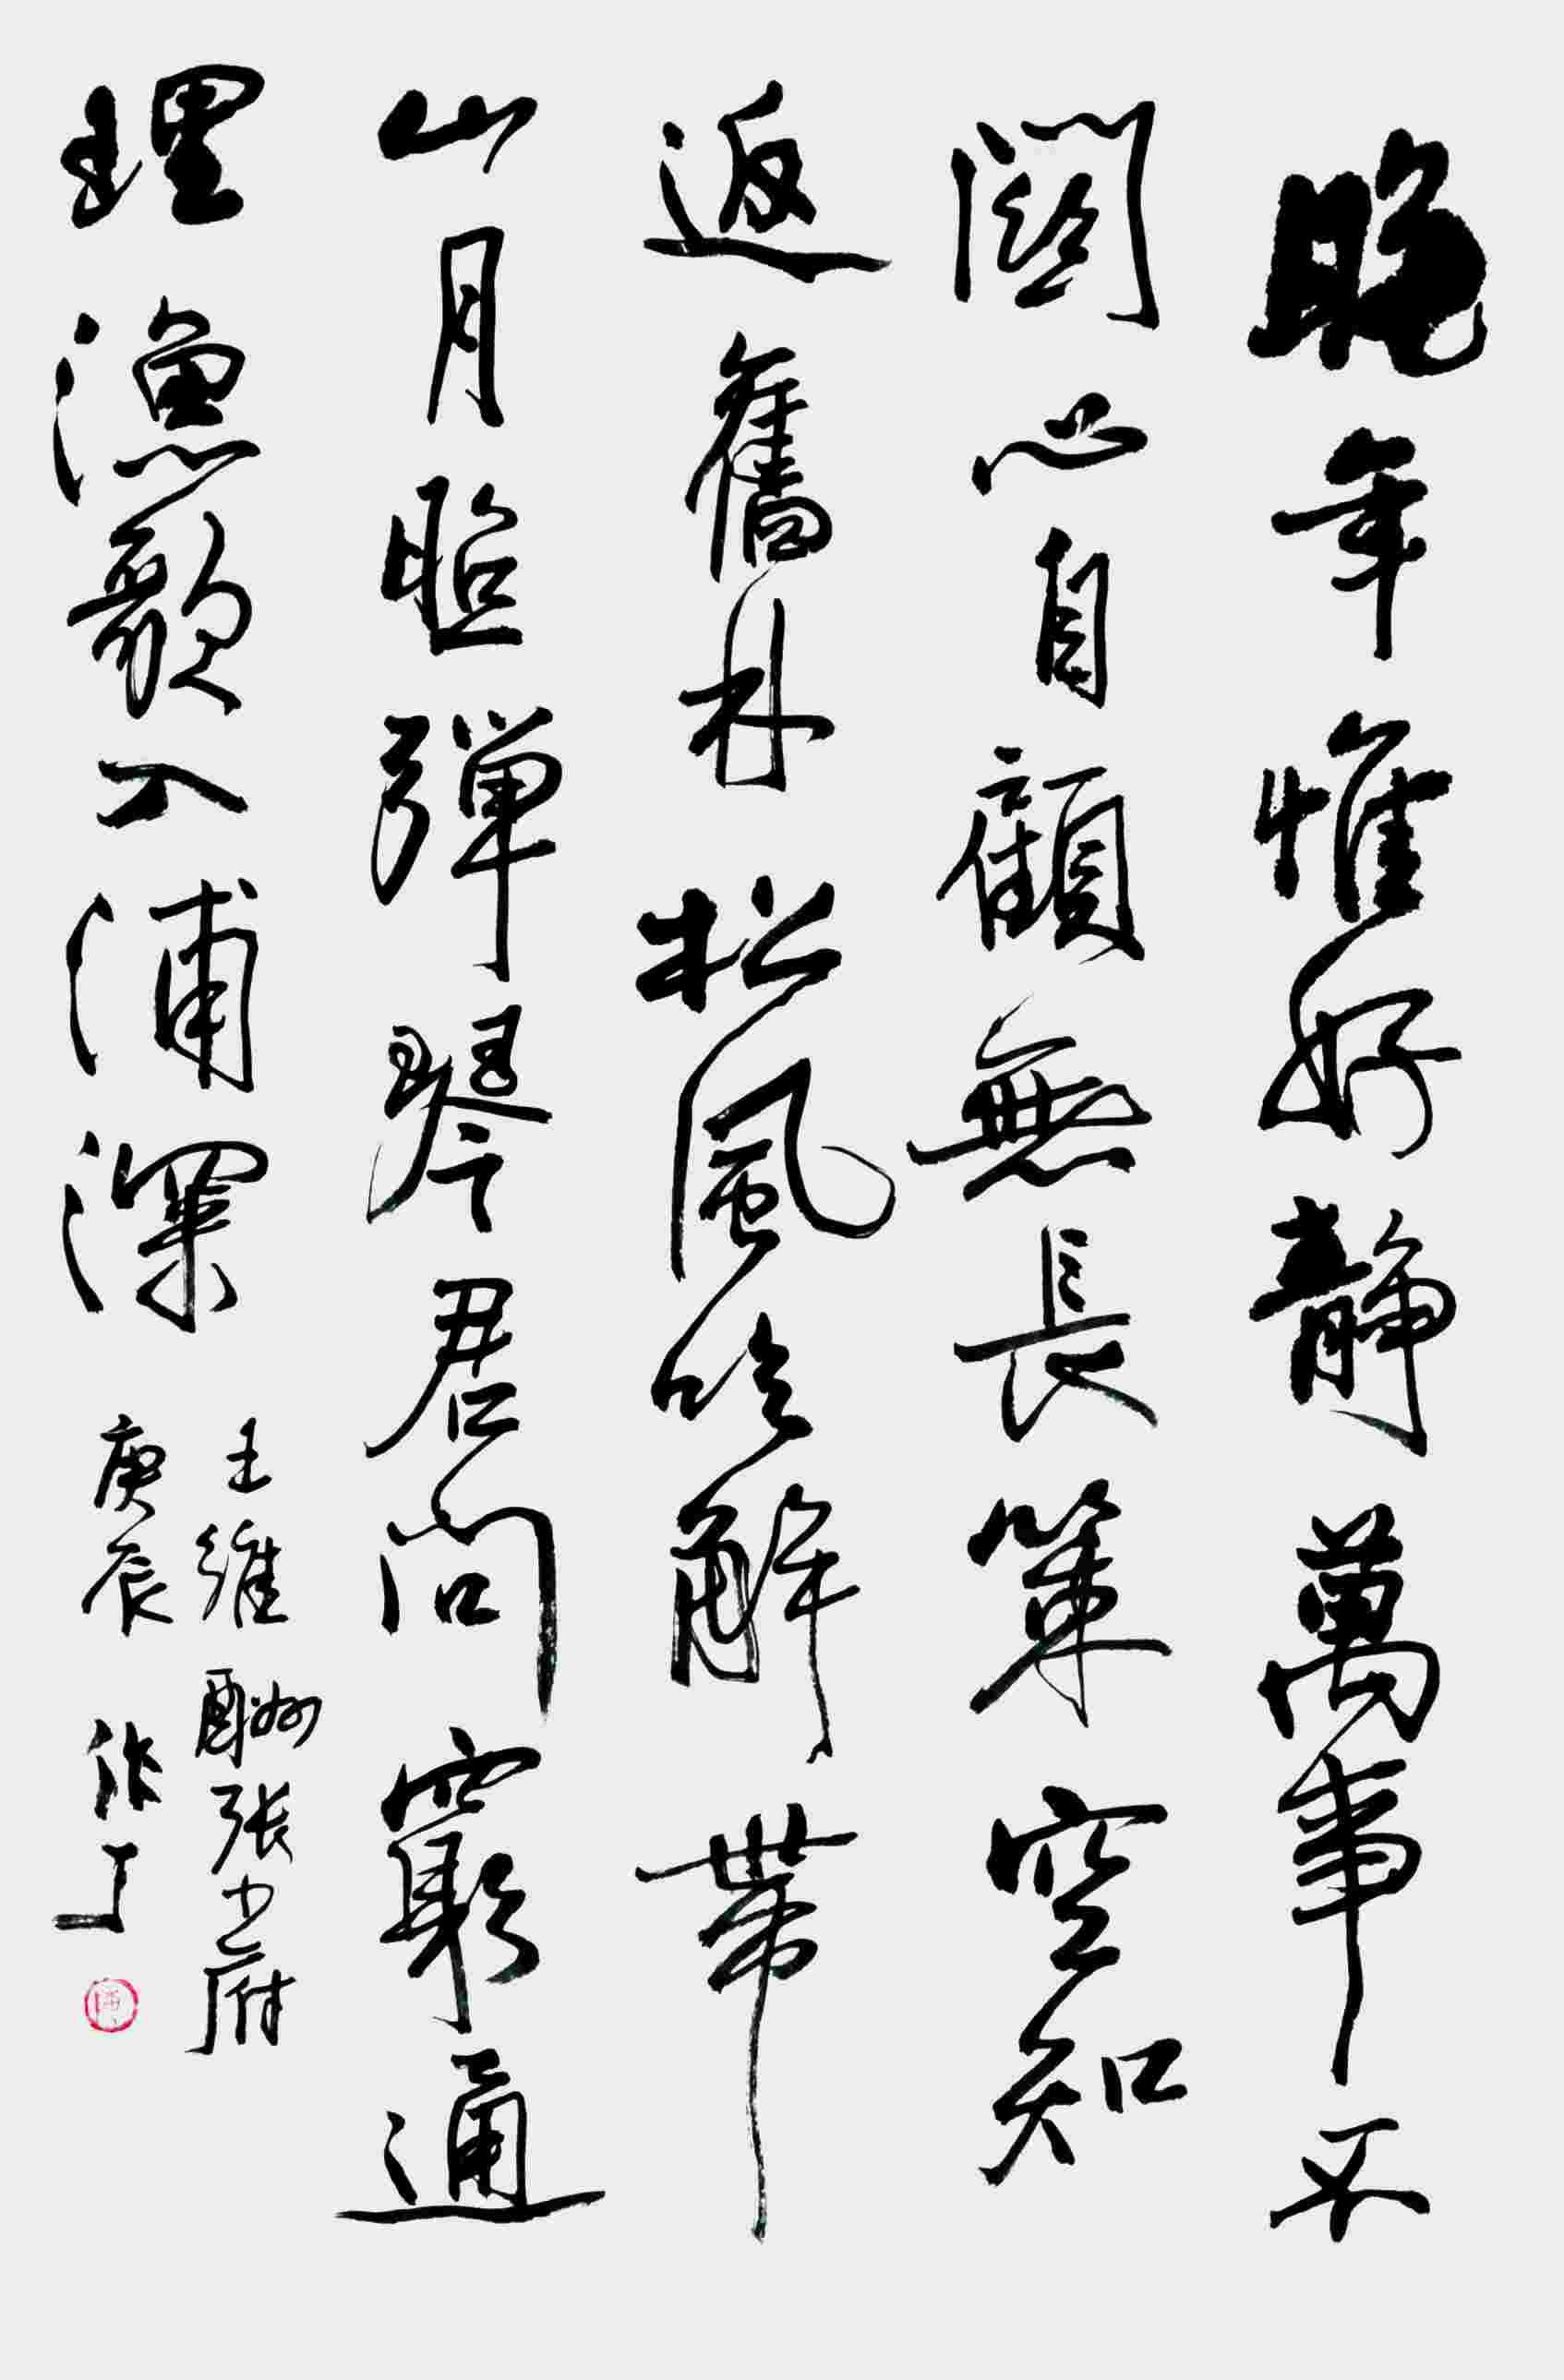 晚年惟好靜萬事不
關心自顧無長策空知
返舊林松風吹解帶
山月照彈琴君問窮通
理漁歌入浦深
王維酬張少府
庚辰